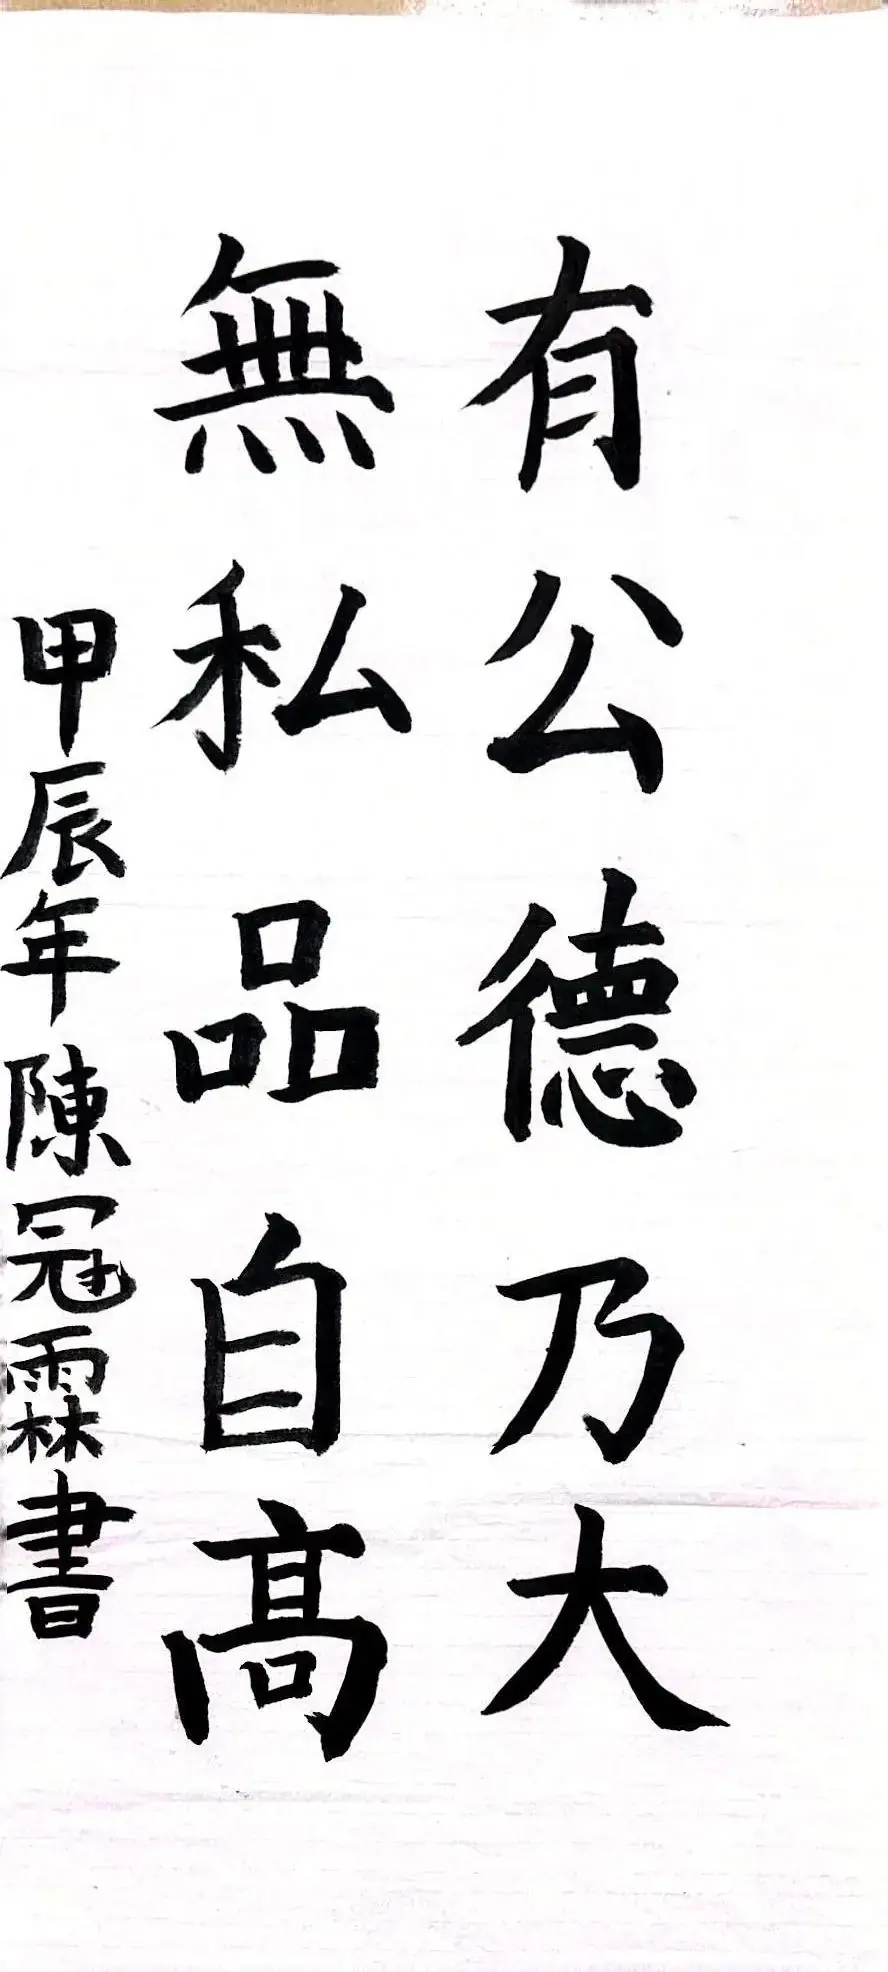 有公德乃大
無私品自高
甲辰年陳冠霖書